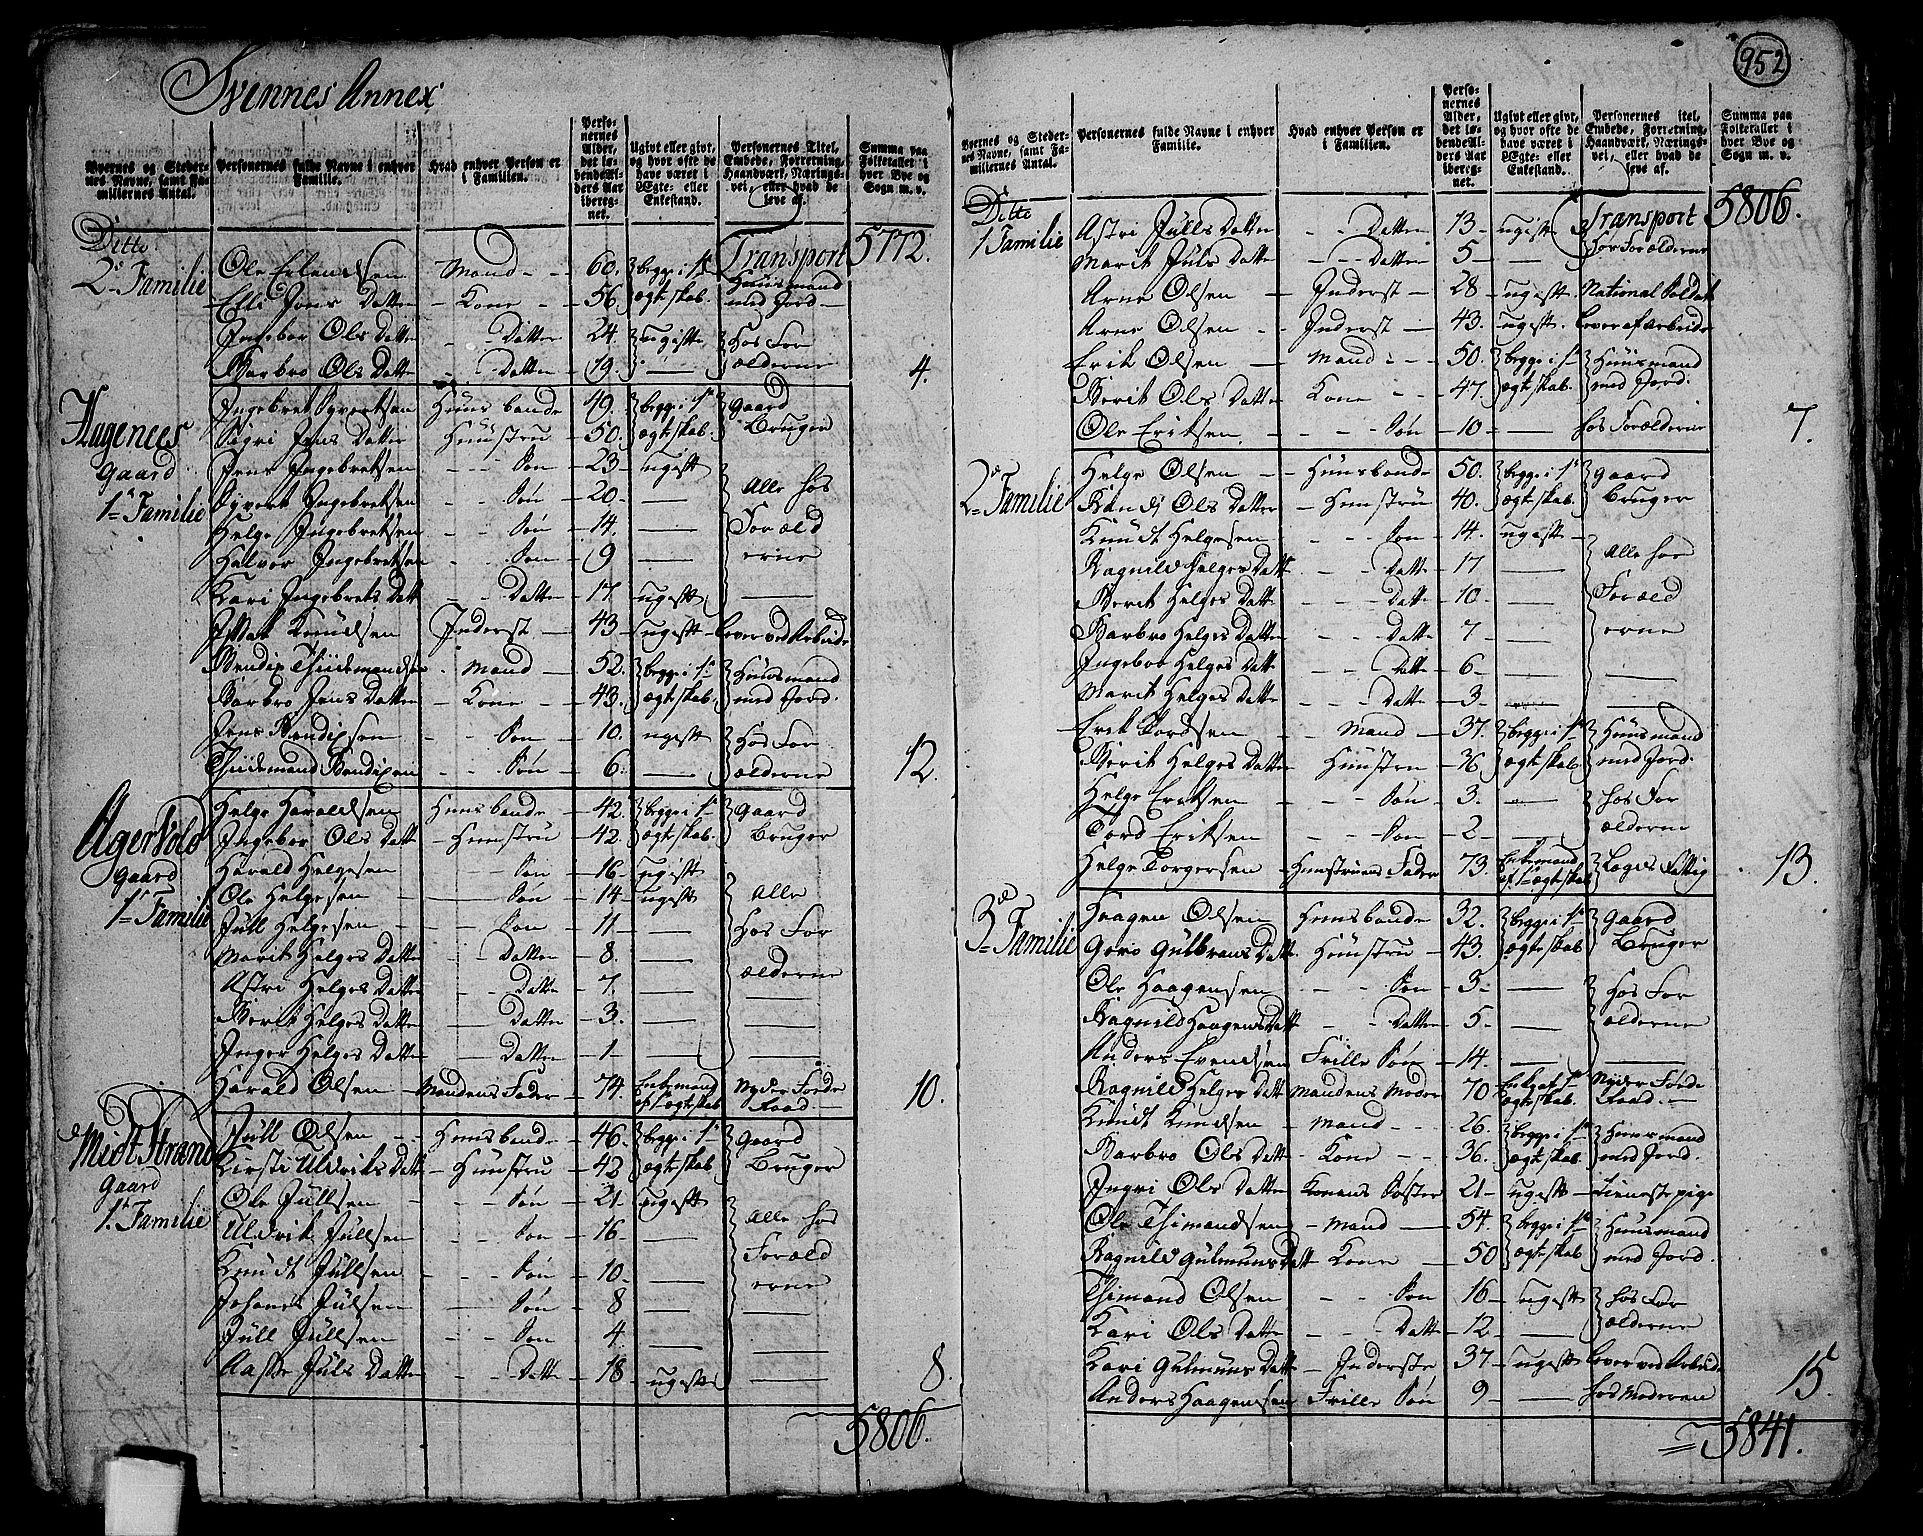 Svennes Annex
952
Byernes og Steder-
nes Navne, samt Fa-
miliernes Antal.
Personernes fulde Navne i enhver
Familie.
Hvad enhver Person er
i Familien.
Perso-
nernes
Alder,
det lø-
bende Al-
ders Aar
ibereg-
net.
Ugivt eller givt,
og hvor ofte de
have været i
Ægte- eller
Enkestand.
Personernes Titel,
Embede, Forretning,
Haandværk, Nærings-
vei, eller hvad de
leve af.
Summa paa
Folketallet i
hver Bye og
Sogn m. v.
Ditto
2de Familie
Transport 5772.
Ole Erlendsen Mand 60. begge i 1te Huusmand
Elli Jens Datter Kone 56. ægteskab. med Jord
Ingebor Ols Datter Datter 24. ugifte Hos For
Barbro Ols Datter Datter 19. ælderne 4.
Hagenees
gaard
1te Familie
Ingebret Syvertsen Huusbonde 49. begge i 1te Gaard
Sigri Jens Datter Huustru 50. ægteskab. Bruger
Jens Ingebretsen Søn 23 ugift
Syvert Ingebretsen Søn 20. Alle hos
Helge Ingebretsen Søn 14. Foræld
Halvor Ingebretsen Søn 9 erne
Kari Ingebrets Datt Datter 17. ugift
Knudsen Inderst 43 ugift Lever ved Arbeide
Bendix Thidemandsen Mand 52. begge i 1te Huusmand
Barbro Jens Datter Kone 43. ægteskab. med Jord.
Jens Bendixsen Søn 10. ugift Hos For
Thidemand Bendixen Søn 6. ælderne 12.
Agervold
gaard
1te Familie
Helge Haraldsen Huusbonde 42. begge i 1te Gaard
Ingebor Ols Datt Huustru 42. ægteskab. Bruger
Harald Helgesen Søn 16 ugift
Ole Helgesen Søn 14 ugift Alle
Jull Helgesen Søn 11 Hos For
Marit Helges Datter Datter 8. ælderne
Astri Helges Datter Datter 7.
Berit Helges Datter Datter 3.
Inger Helges Datter Datter 1
Harald Olsen Mandens Fader 74. Enkemand Nyder Føde
af 1te ægteskab Raad. 10.
Midt Strand
gaard
1te Familie
Jull Olsen Huusbonde 46. begge i 1te Gaard
Kirsti Uldriks Datt Huustru 42 ægteskab Bruger
Ole Jullsen Søn 21 ugift
Uldrik Jullsen Søn 16 Alle hos
Knudt Jullsen Søn 10 Foræld
Johanes Julsen Søn 8 erne
Jull Jullsen Søn 4
Aasse Juls Datter Datter 18 ugift 8.
5806.
Byernes og Steder-
nes Navne, samt Fa-
miliernes Antal.
Personernes fulde Navne i enhver
Familie.
Hvad enhver Person er
i Familien.
Perso-
nernes
Alder,
det lø-
bende Al-
ders Aar
ibereg-
net.
Ugivt eller givt,
og hvor ofte de
have været i
Ægte- eller
Enkestand.
Personernes itel,
Embede, Forretning,
Haandværk, Nærings-
vei, eller hvad de
leve af.
Summa paa
Folketallet i
hver Bye og
Sogn m. v.
Ditto
1 Familie
Transport 5806.
Astri Julls Datter Datter 13 ugift
Marit Juls Datter Datter 5 hos Forælderne
Arne Olsen Inderst 28 ugift National Soldat
Arne Olsen Inderst 43. ugift. Lever af Arbeide
Erik Olsen Mand 50. begge i 1te Huusmand
Berit Ols Datter Kone 47. ægteskab. med Jord.
Ole Eriksen Søn 10 hos Forælderne 7.
2de Familie
Helge Olsen Huusbonde 50. begge i 1te Gaard
Randi Ols Datter Huustru 40. ægteskab. Bruger
Knudt Helgesen Søn 14. ugift
Ragnild Helges Datt Datter 17 Alle hos
Berit Helges Datt Datter 10. Foræld
Barbro Helges Datter Datter 7 erne
Ingebor Helges Datt Datter 6
Marit Helges Datter Datter 3
Erik Tordsen Mand 37. begge i 1te Huusmand
Berit Helges Datter Huustru 36 ægteskab. med Jord.
Helge Eriksen Søn 3. hos For
Tord Eriksen Søn 2 ælderne
Helge Torgersen Huustruens Fader 73. Enkemand Lægds Fattig
af 1te ægteskab 13.
3de Familie
Haagen Olsen Huusbonde 32. begge i 1te Gaard
Goro Gulbrans Datt Huustru 43. ægteskab Bruger
Ole Haagensen Søn 3 Hos For
Ragnild Haagens Datt Datter 5. ælderne
Anders Evendsen Frille Søn 14.
Ragnild Helges Datt Mandens Moder 70 Enke af 1te Nyder Føde
ægteskab. Raad.
Knudt Knudsen Mand 26. begge i 1te Huusmand
Barbro Ols Datt Kone 36. ægteskab. med Jord.
Ingri Ols Datter Konens Søster 21 ugift Tieneste pige
Ole Thimandsen Mand 54. begge i 1te Huusmand
Ragnild Gulmuns Datt Kone 50 ægteskab med Jord.
Thimand Olsen Søn 16 ugift hos For
Kari Ols Datter Datter 12 ælderne
Kari Gulmuns Datt Inderste 37 ugift Lever ved Arbeide
Anders Haagensen Frille Søn 9 hos Moderen 15.
5841.